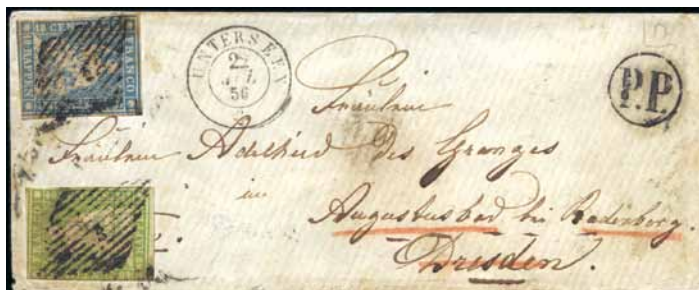 10 CENT
RAPPEN
FRANCO
UNTERSEEN
JUL
56
P.P.
Fräulein
Fräulein Adelheid Des Granges
im
Augustusbad bei Radeberg.
Dresden.